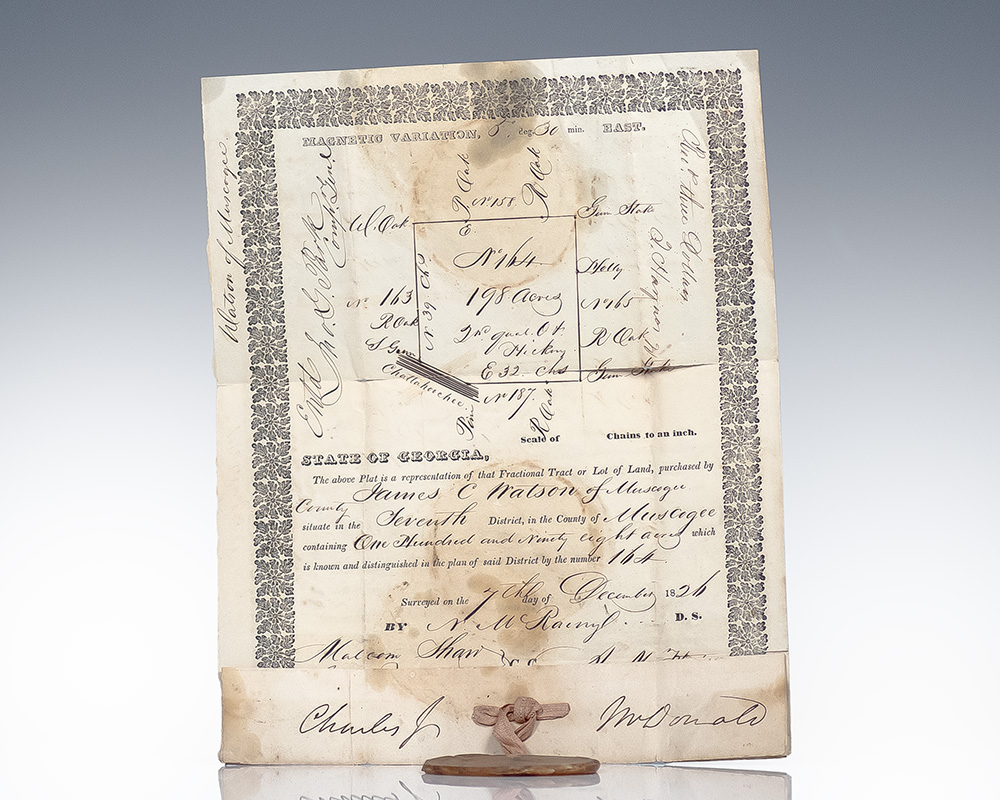 MAGNETIC VARIATION, 5 deg. 30 min. EAST.
Watson of Muscogee
Comp. Genl
P Oak
R Oak
No 158
W. Oak
E
Gum Stake
No 164
Holly
No 163
N 39 Chs
198 Acres
No 165
R Oak
2nd qual. O &
Hickory
R Oak
S Gum
E 32 Chs
Gum Stake
Chattahoochee
No 187
Pine
R Oak
Scale of Chains to an inch.
STATE OF GEORGIA,
The above Plat is a representation of that Fractional Tract or Lot of Land, purchased by
James C Watson of Muscogee
County
situate in the Seventh District, in the County of Muscogee
containing One Hundred and Ninety eight acres which
is known and distinguished in the plan of said District by the number 164
Surveyed on the 7th day of December 1826
BY N. D. S.
Malcom Shaw
Charles J McDonald